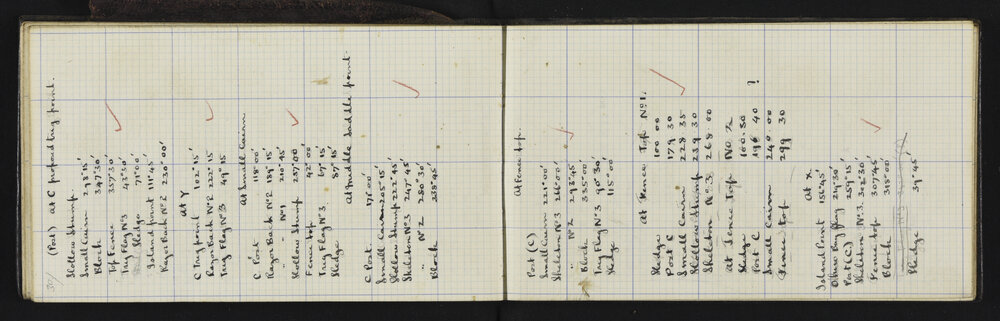 30/
(Post) at C prepond trig point.
Hollow Stump.
Small Cairn 293°15'
Block 347°30'
Top Fence 357°30'
Trig Flag Nº3 42°30'
Sledge 71°00'
Island point 111°45'
Rays Back Nº2 230°00'
at Y
C Trig point 102°15'
Rays Back Nº2 222°15
Trig Flag Nº3 49°15
at Small Cairn
C Post 118°00'
Rays Back Nº2 189°15'
" Nº1 210°45'
Hollow Stump 257°00
Fence top 42°00
Trig Flag Nº3 67°15
Sledge 87°15'
at Saddle Saddle point.
C Post 176°00'
Small Cairn 205°15'
Hollow Stump 222°45'
Skeleton Nº3 247°45'
" Nº2 280°30'
Block 285°45'
At Fence top.
Post (C)
Small Cairn 221°00'
Skeleton Nº3 266°00'
" Nº2 293°45'
Block 335°00'
Trig Flag Nº3 90°30'
Sledge 115°00
At Fence Top Nº1.
Sledge 100 00
Post C 179 30
Small Cairn 228 35
Hollow Stump 239 30
Skeleton Nº3 268 00
at Fence Top NO 2
Sledge 100.30
Post C 196 40 ?
Small Cairn 240 00
Fence top 299 30
at X
Island Point 158°45'
219°30'
Post (C) 259°15
Skeleton Nº3. 302°30
Fence top 307°45
Block 318°00
Sledge 39°45'